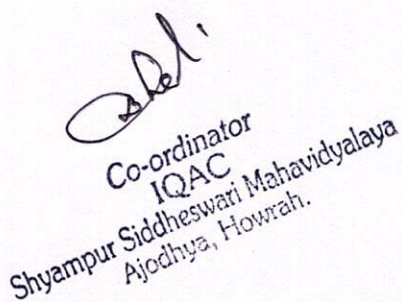 Co-ordinator
IQAC
Shyampur Siddheswari Mahavidyalaya
Ajodhya, Howrah.